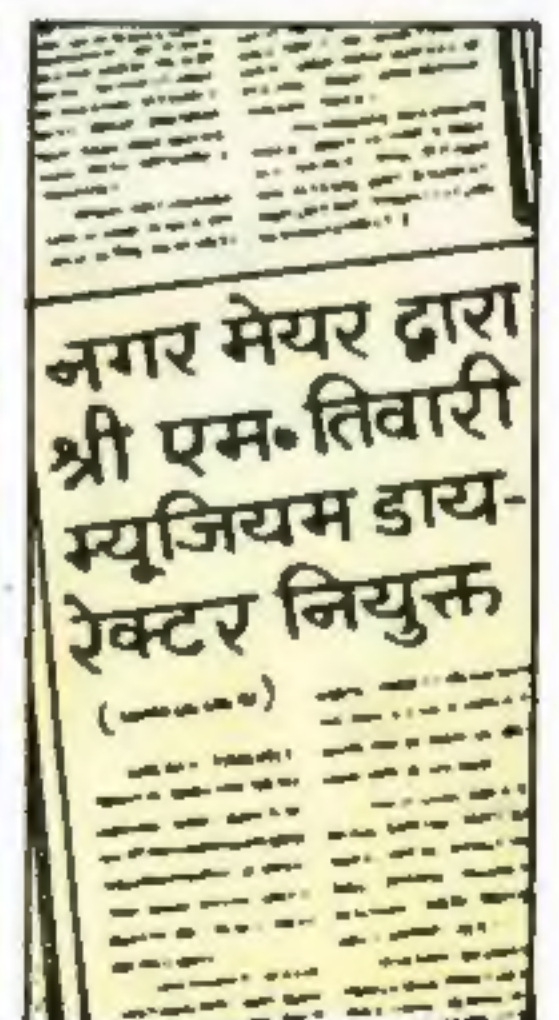 नगर मेयर द्वारा
श्री एम. तिवारी
म्यूजियम डाय-
रेक्टर नियुक्त